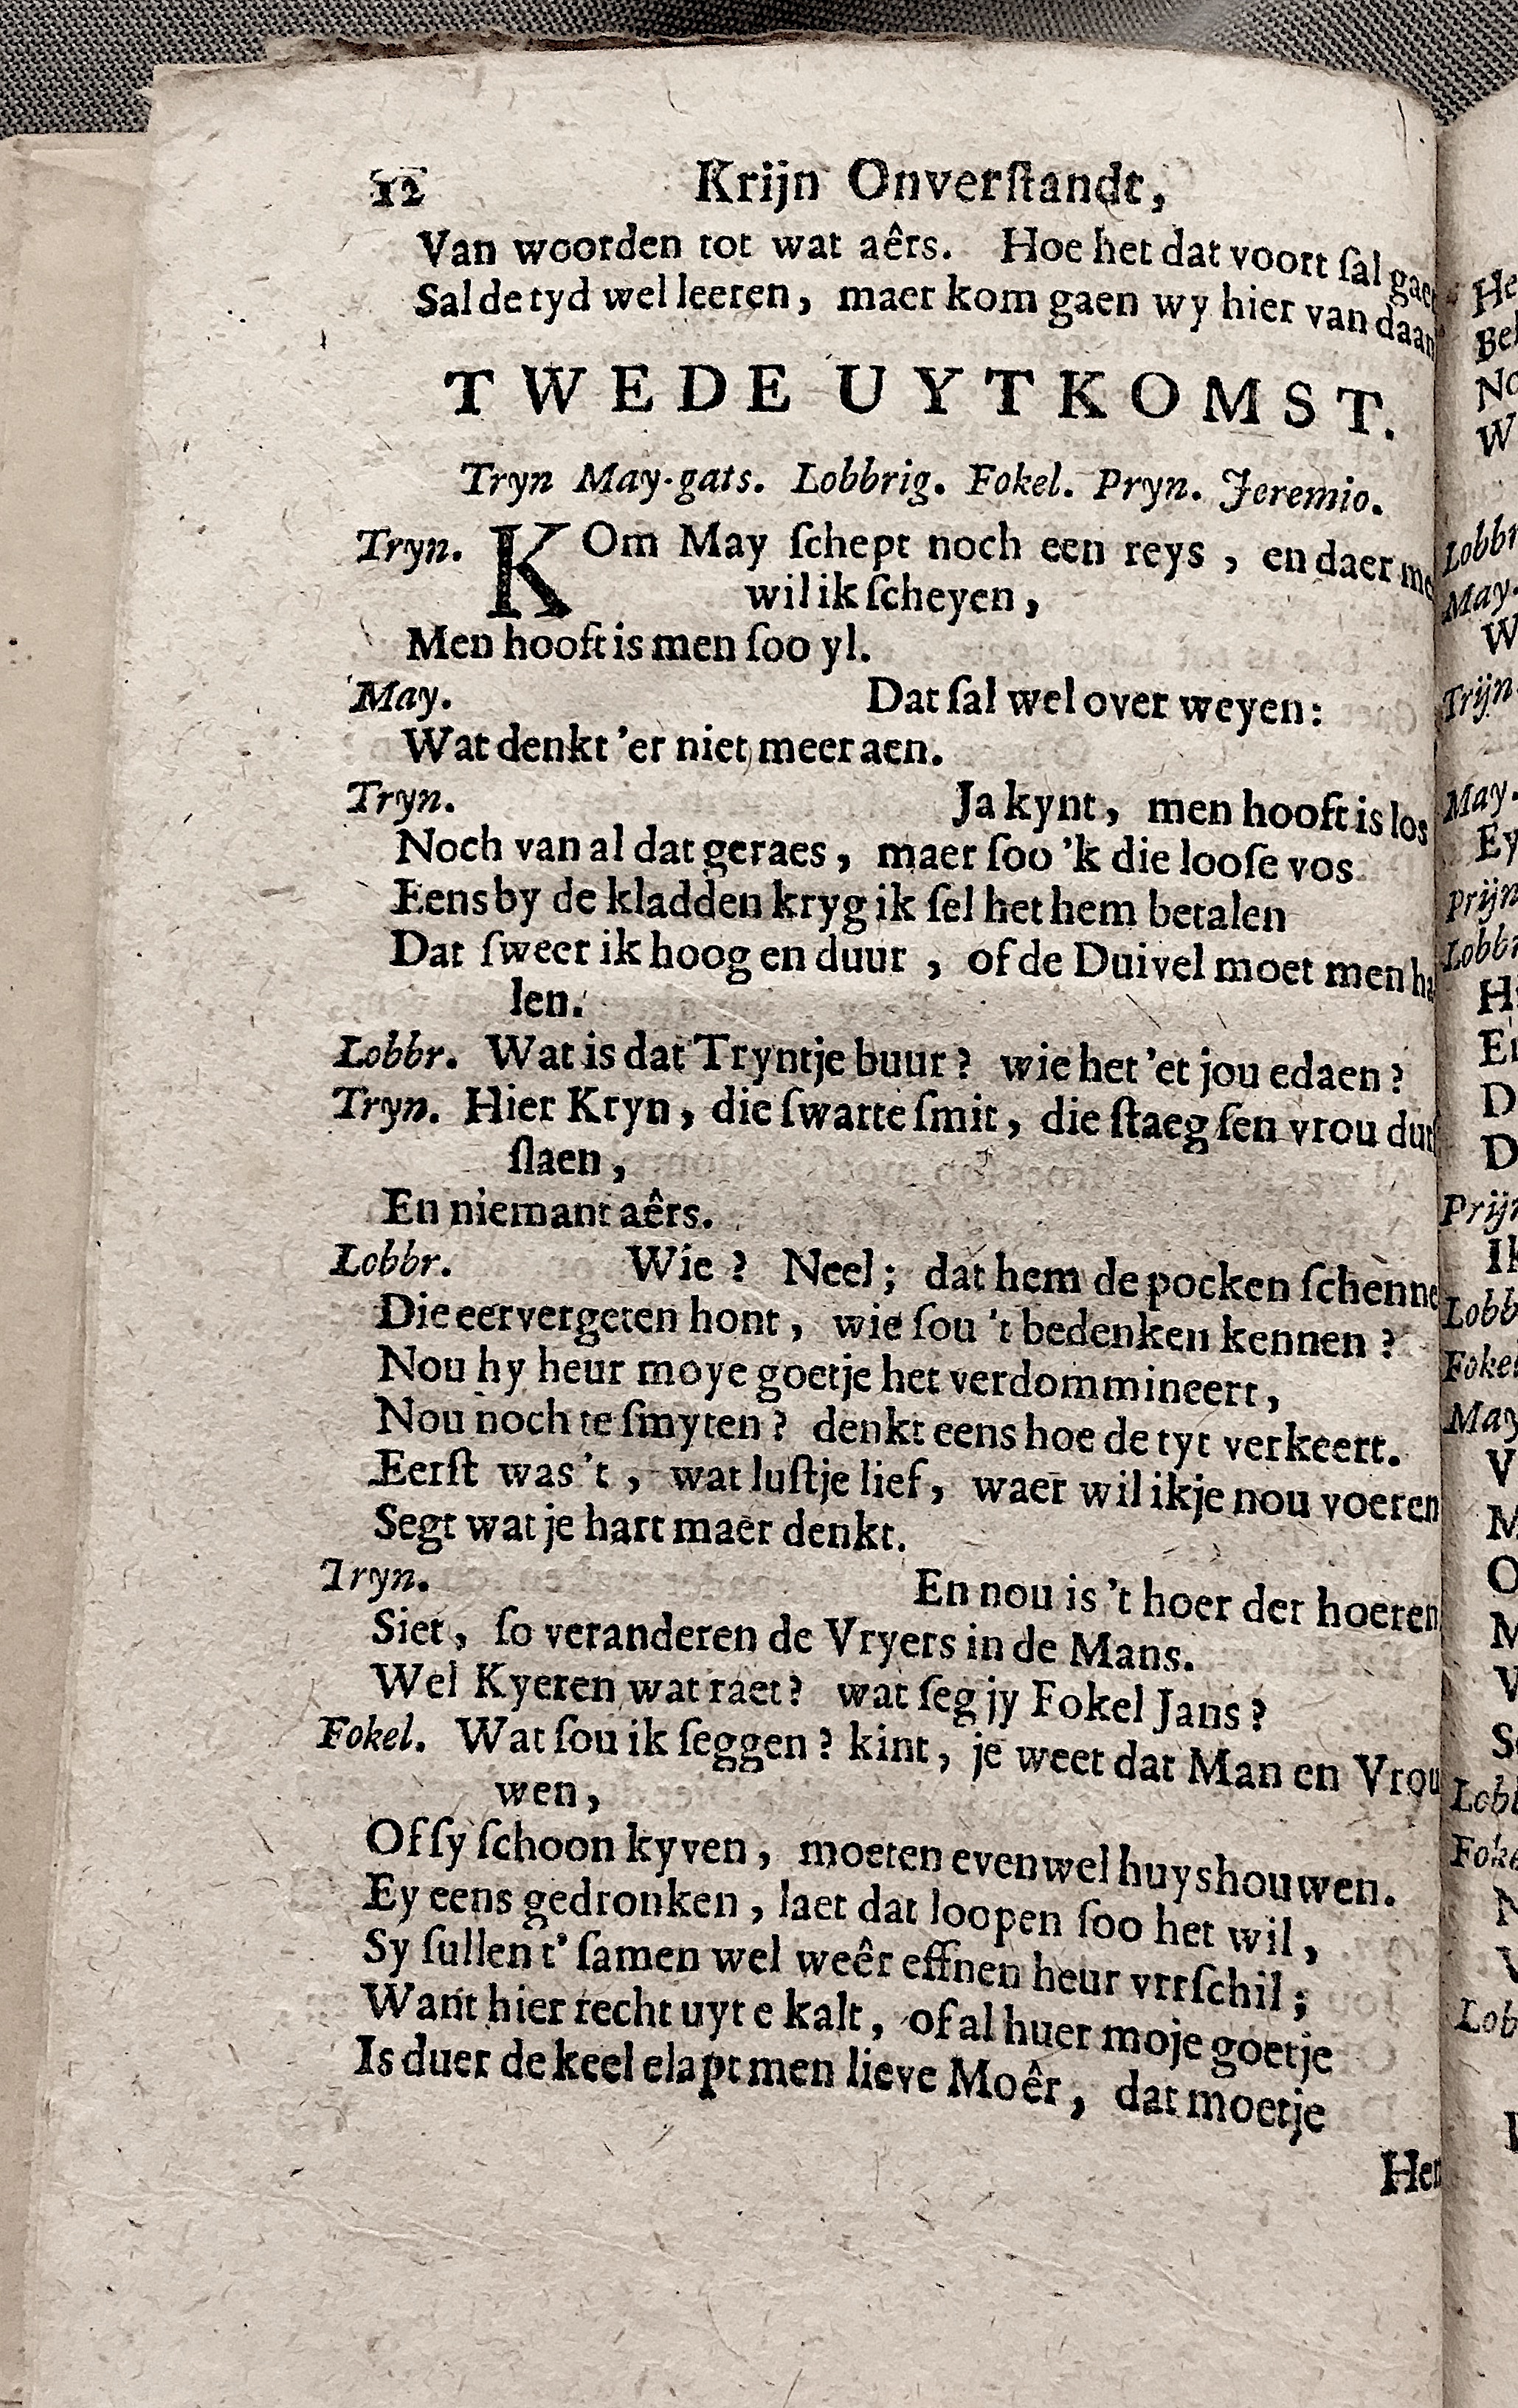 12 Krijn Onverſtandt,
Van woorden tot wat aêrs. Hoe het dat voort ſal gaen
Sal de tyd wel leeren, maer kom gaen wy hier van daan
TWEDE UYTKOMST.
Tryn May-gats. Lobbrig. Fokel. Pryn. Jeremio.
Tryn. KOm May ſchept noch een reys, en daer me
wil ik ſcheyen,
Men hooft is men ſoo yl.
May. Dat ſal wel over weyen:
Wat denkt 'er niet meer aen.
Tryn. Ja kynt, men hooft is los
Noch van al dat geraes, maer ſoo 'k die looſe vos
Eens by de kladden kryg ik ſel het hem betalen
Dat ſweer ik hoog en duur, of de Duivel moet men ha
len.
Lobbr. Wat is dat Tryntje buur? wie het 'et jou edaen?
Tryn. Hier Kryn, die ſwarte ſmit, die ſtaeg ſen vrou durf
ſlaen,
En niemant aêrs.
Lobbr. Wie? Neel; dat hem de pocken ſchenne
Die eervergeten hont, wie ſou 't bedenken kennen?
Nou hy heur moye goetje het verdommineert,
Nou noch te ſmyten? denkt eens hoe de tyt verkeert.
Eerſt was 't, wat luſtje lief, waer wil ikje nou voeren
Segt wat je hart maer denkt.
Tryn. En nou is 't hoer der hoeren
Siet, ſo veranderen de Vryers in de Mans.
Wel Kyeren wat raet? wat ſeg jy Fokel Jans?
Fokel. Wat ſou ik ſeggen? kint, je weet dat Man en Vrou
wen,
Of ſy ſchoon kyven, moeten evenwel huyshouwen.
Ey eens gedronken, laet dat loopen ſoo het wil,
Sy ſullen t' ſamen wel weêr effnen heur vrrſchil;
Want hier recht uyt e kalt, of al huer moje goetje
Is duer de keel elapt men lieve Moêr, dat moetje
Her